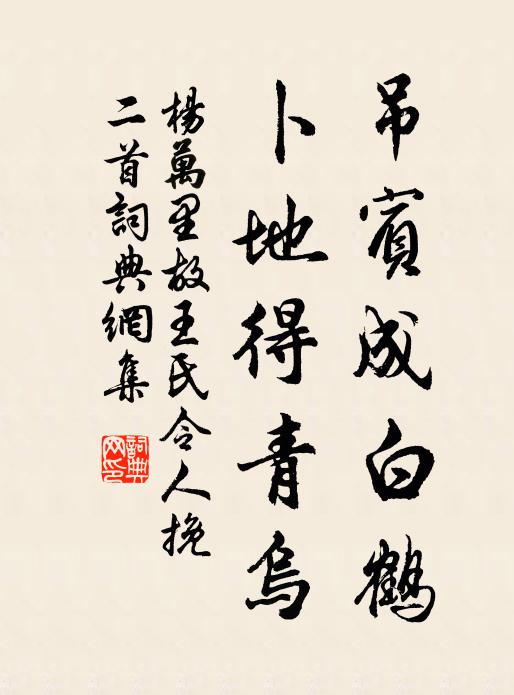 吊賓成白鶴
卜地得青烏
楊萬里故王氏令人挽
二首詞典網集
詞典网印